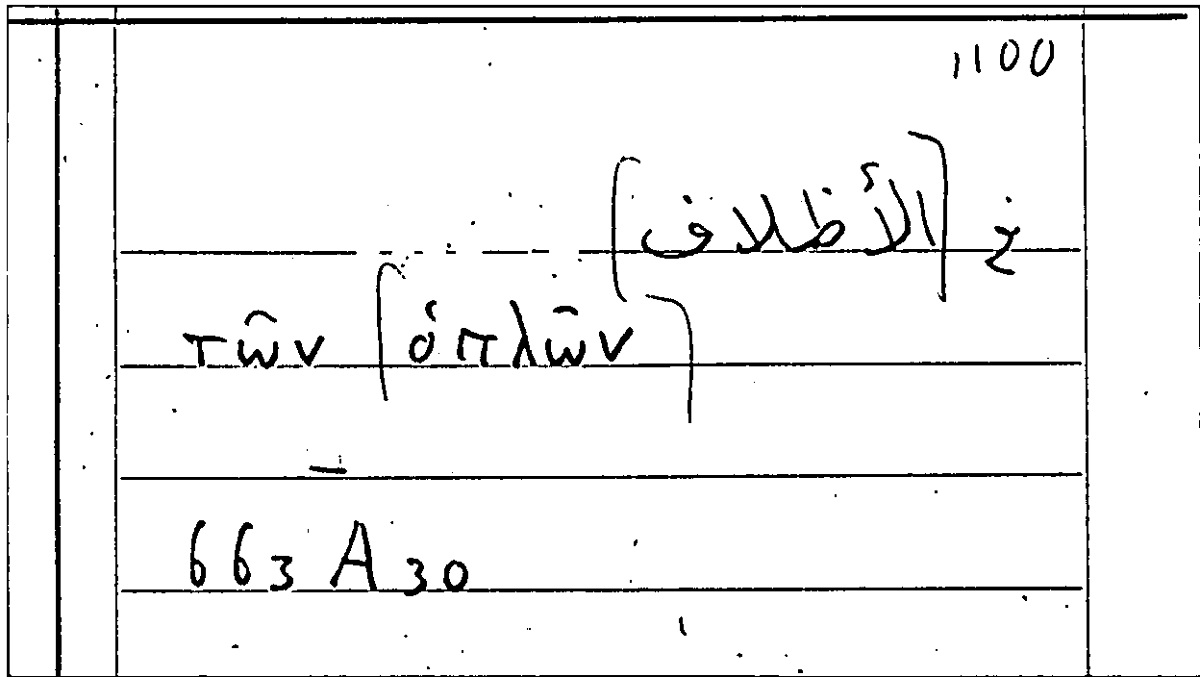 1100
خ [الأظلاف]
τῶν [ὁπλῶν]
663 A 30